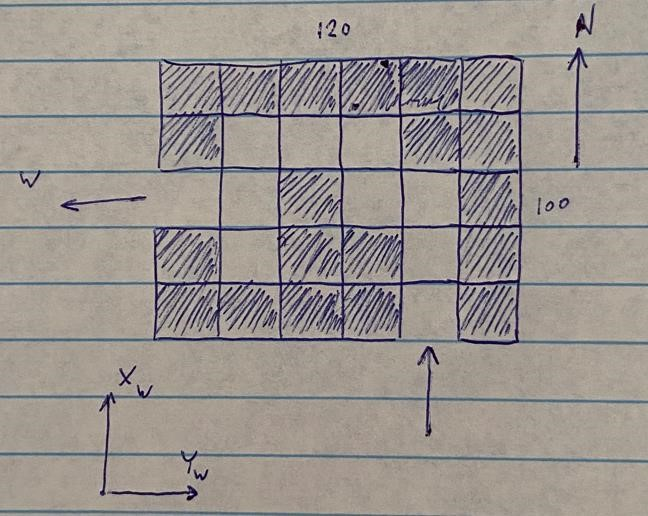 120
N
W
100
X_W
Y_W